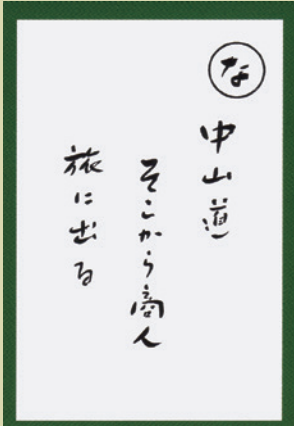 な
中山道
そこから商人
旅に出る